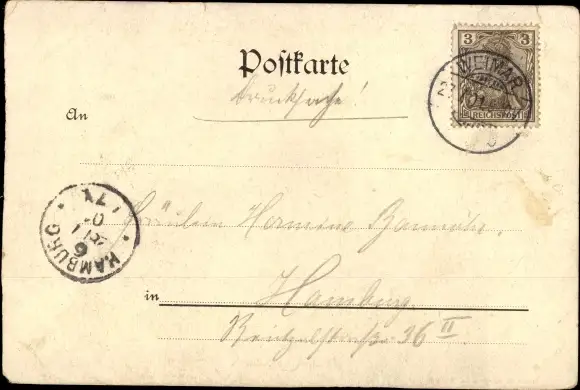 Postkarte
Drucksache!
3
REICHSPOST
WEIMAR
An
Fräulein Hermine
HAMBURG
in Hamburg
36 II